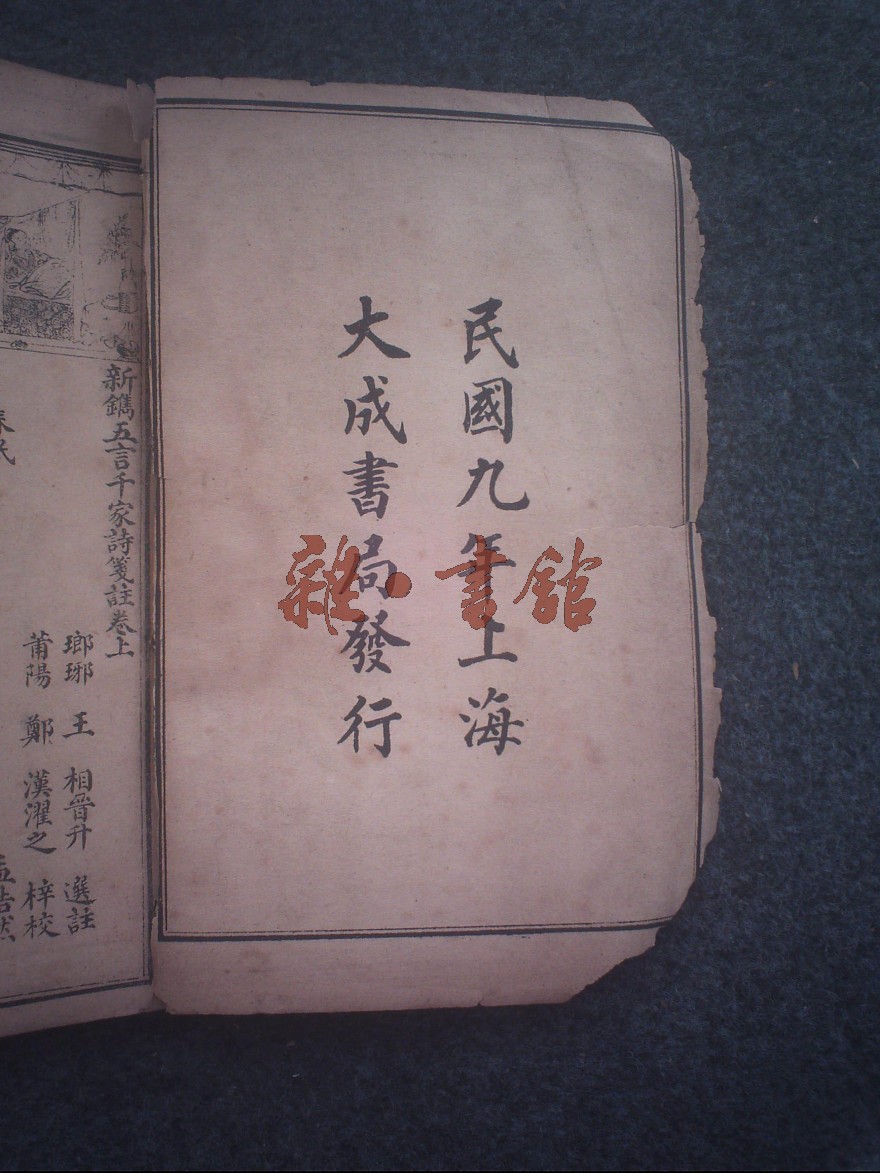 民國九年上海
大成書局發行
雜·書館
新鐫五言千家詩箋註卷上
瑯琊 王 相晉升 選註
莆陽 鄭 漢濯之 梓校
春眠
孟浩然